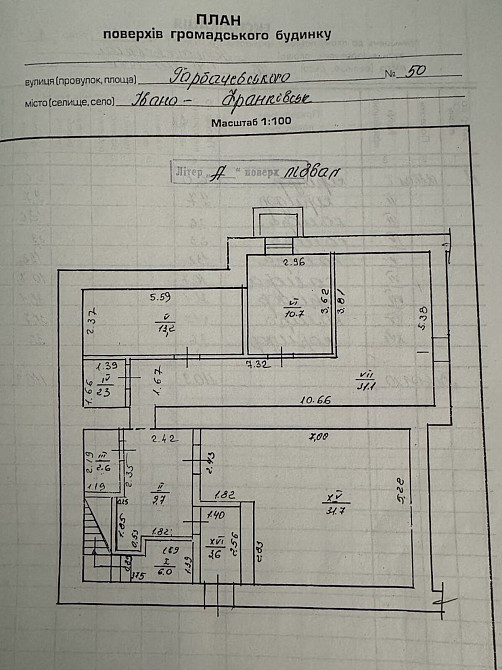 ПЛАН
поверхів громадського будинку
вулиця (провулок, площа) Гарбачевського № 50
місто (селище, село) Івано - Франківськ
Масштаб 1:100
Літер „А“ поверх підвал
2.96
5.59
2.37
V
13,2
VI
10.7
3,62
3,81
5.38
1.39
7.32
1.66
IV
2.3
1.67
VII
31.1
10.66
2.42
7,00
2,19
III
2.6
2.35
2,43
1.19
II
9.7
1.82
XV
31.7
5,28
1.85
0.53
1.82
1.40
XVI
3.6
2.56
2.83
1.69
I
6.0
1.39